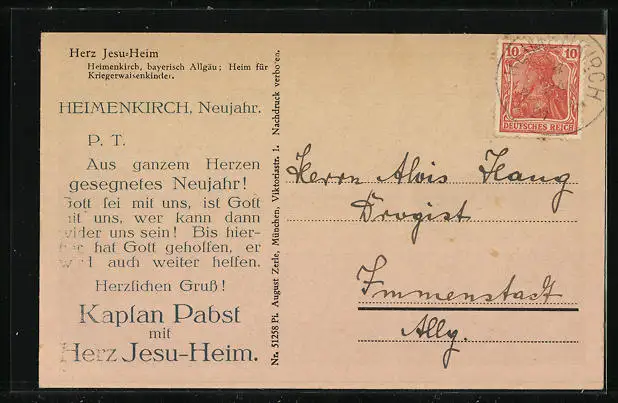 Herz Jesu-Heim
Heimenkirch, bayerisch Allgäu; Heim für
Kriegerwaisenkinder.
HEIMENKIRCH, Neujahr.
P. T.
Aus ganzem Herzen
gesegnetes Neujahr!
Gott sei mit uns, ist Gott
mit uns, wer kann dann
wider uns sein! Bis hier-
her hat Gott geholfen, er
wird auch weiter helfen.
Herzlichen Gruß!
Kaplan Pabst
mit
Herz Jesu-Heim.
Nr. 51258 Pl. August Zerle, München, Viktoriastr. 1. Nachdruck verboten.
10 10
DEUTSCHES REICH
HEIMENKIRCH
Herrn Alois Haug
Drogist
Immenstadt
Allg.